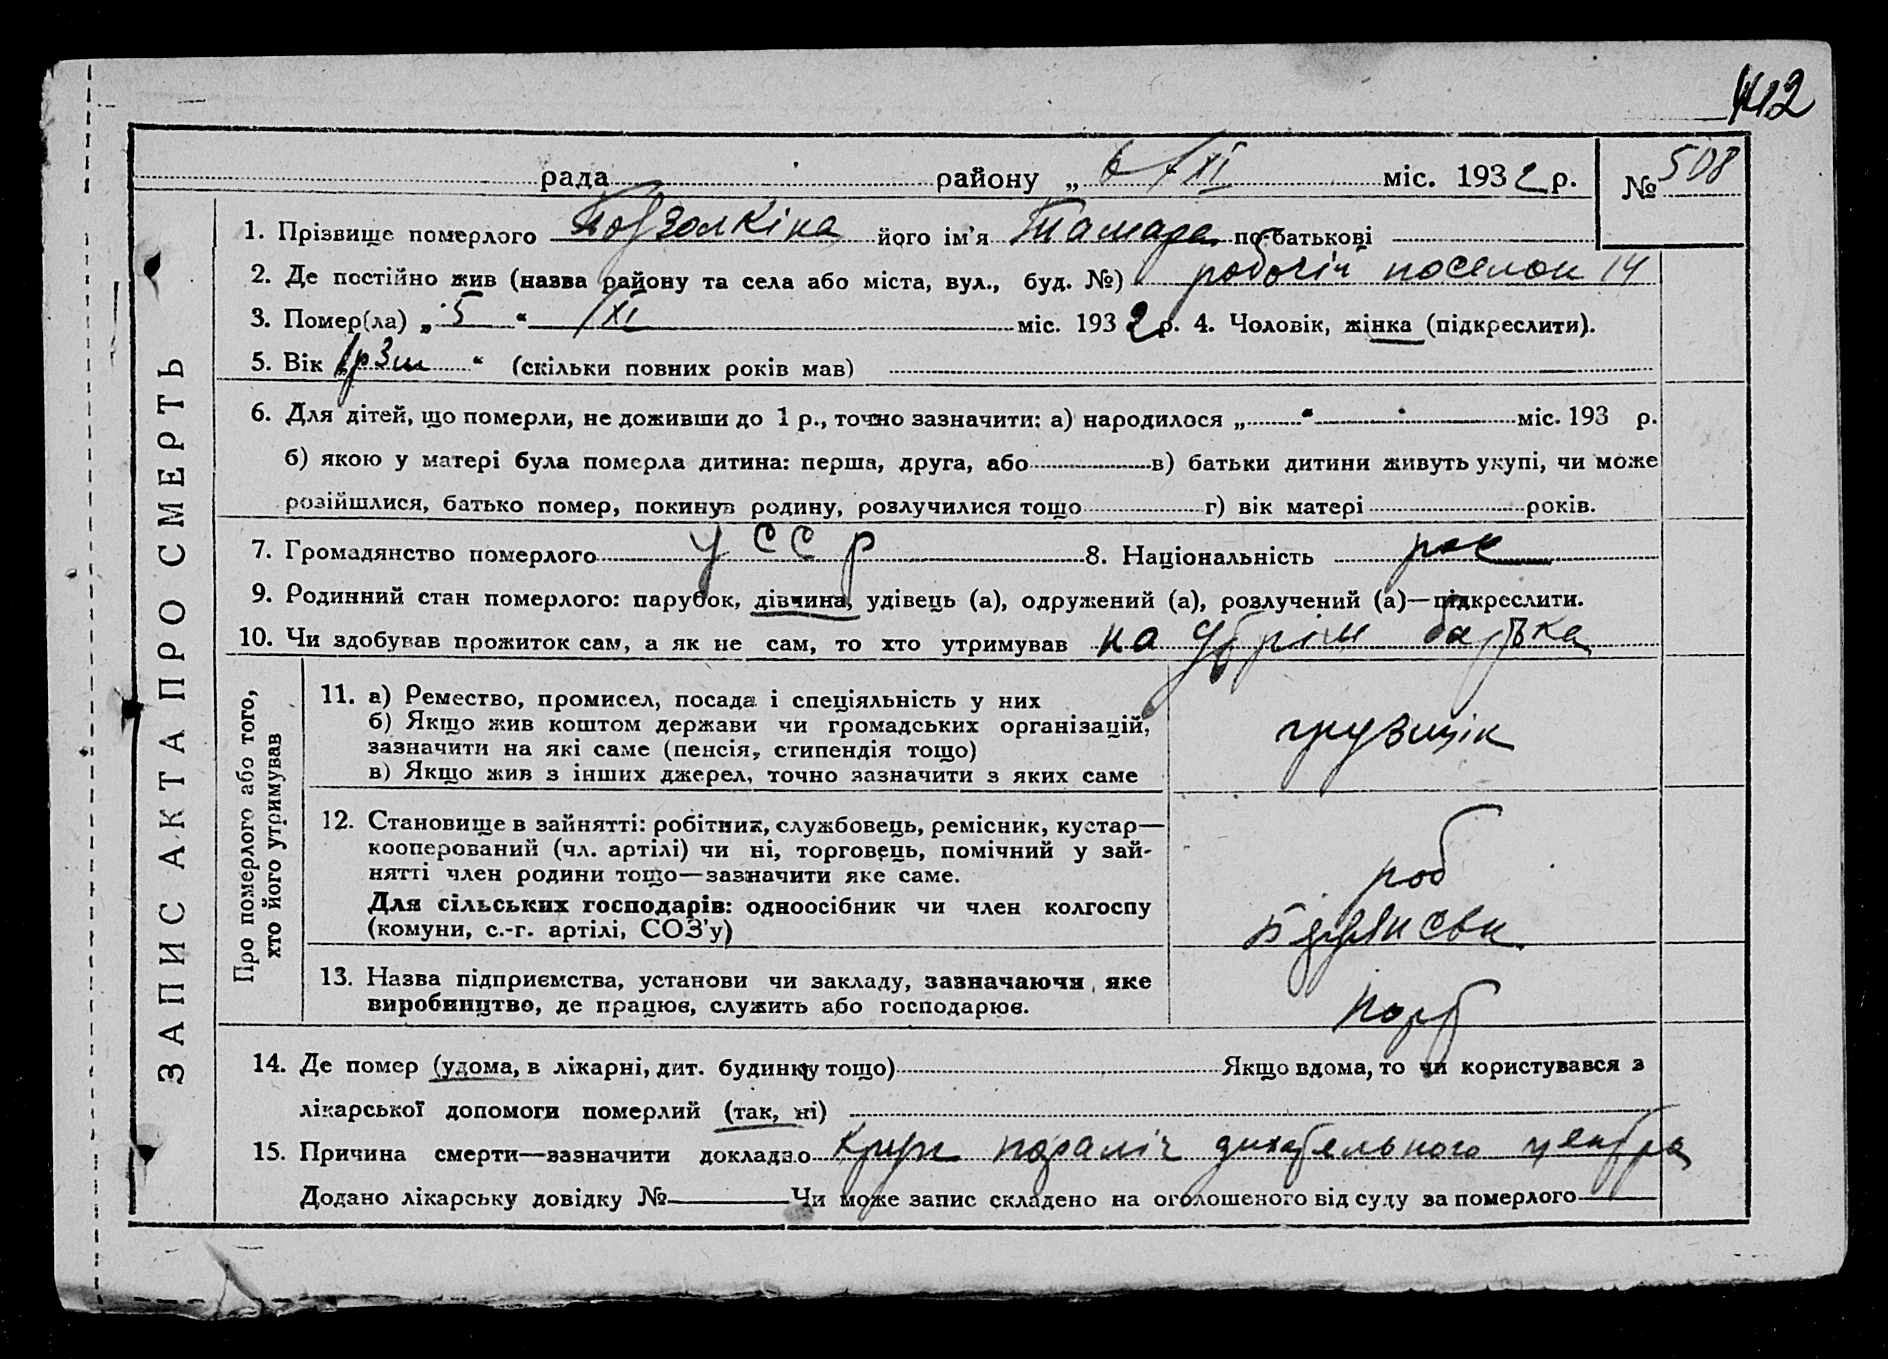 412
рада района „ 6 / XI міс. 1932 р. № 508
1. Прізвище померлого Подзолкіна його ім'я Тамара по батькові
2. Де постійно жив (назва району та села або міста, вул., буд. №) робочій поселок 14
3. Помер(ла) „ 5 “ / XI міс. 1932 р. 4. Чоловік, жінка (підкреслити).
5. Вік 1р 3м “ (скільки повних років мав)
6. Для дітей, що померли, не доживши до 1 р., точно зазначити: а) народилося „ “ міс. 193 р.
б) якою у матері була померла дитина: перша, друга, або в) батьки дитини живуть укупі, чи може
розійшлися, батько помер, покинув родину, розлучилися тощо г) вік матері років.
7. Громадянство померлого УССР 8. Національність рос
9. Родинний стан померлого: парубок, дівчина, удівець (а), одружений (а), розлучений (а)—підкреслити.
10. Чи здобував прожиток сам, а як не сам, то хто утримував на утрім батька
ЗАПИС АКТА ПРО СМЕРТЬ
Про померлого або того,
хто його утримував
11. а) Ремество, промисел, посада і спеціяльність у них
б) Якщо жив коштом держави чи громадських організацій,
зазначити на які саме (пенсія, стипендія тощо)
в) Якщо жив з інших джерел, точно зазначити з яких саме
грузщік
12. Становище в зайнятті: робітник, службовець, ремісник, кустар—
кооперований (чл. артілі) чи ні, торговець, помічний у зай-
нятті член родини тощо—зазначити яке саме.
Для сільських господарів: одноосібник чи член колгоспу
(комуни, с.-г. артілі, СОЗ'у)
роб
13. Назва підприємства, установи чи закладу, зазначаючи яке
виробництво, де працює, служить або господарює.
порт
14. Де помер (удома, в лікарні, дит. будинку тощо) Якщо вдома, то чи користувався з
лікарської допомоги померлий (так, ні)
15. Причина смерти—зазначити докладно Круп параліч дихательного центра
Додано лікарську довідку № Чи може запис складено на оголошеного від суду за померлого